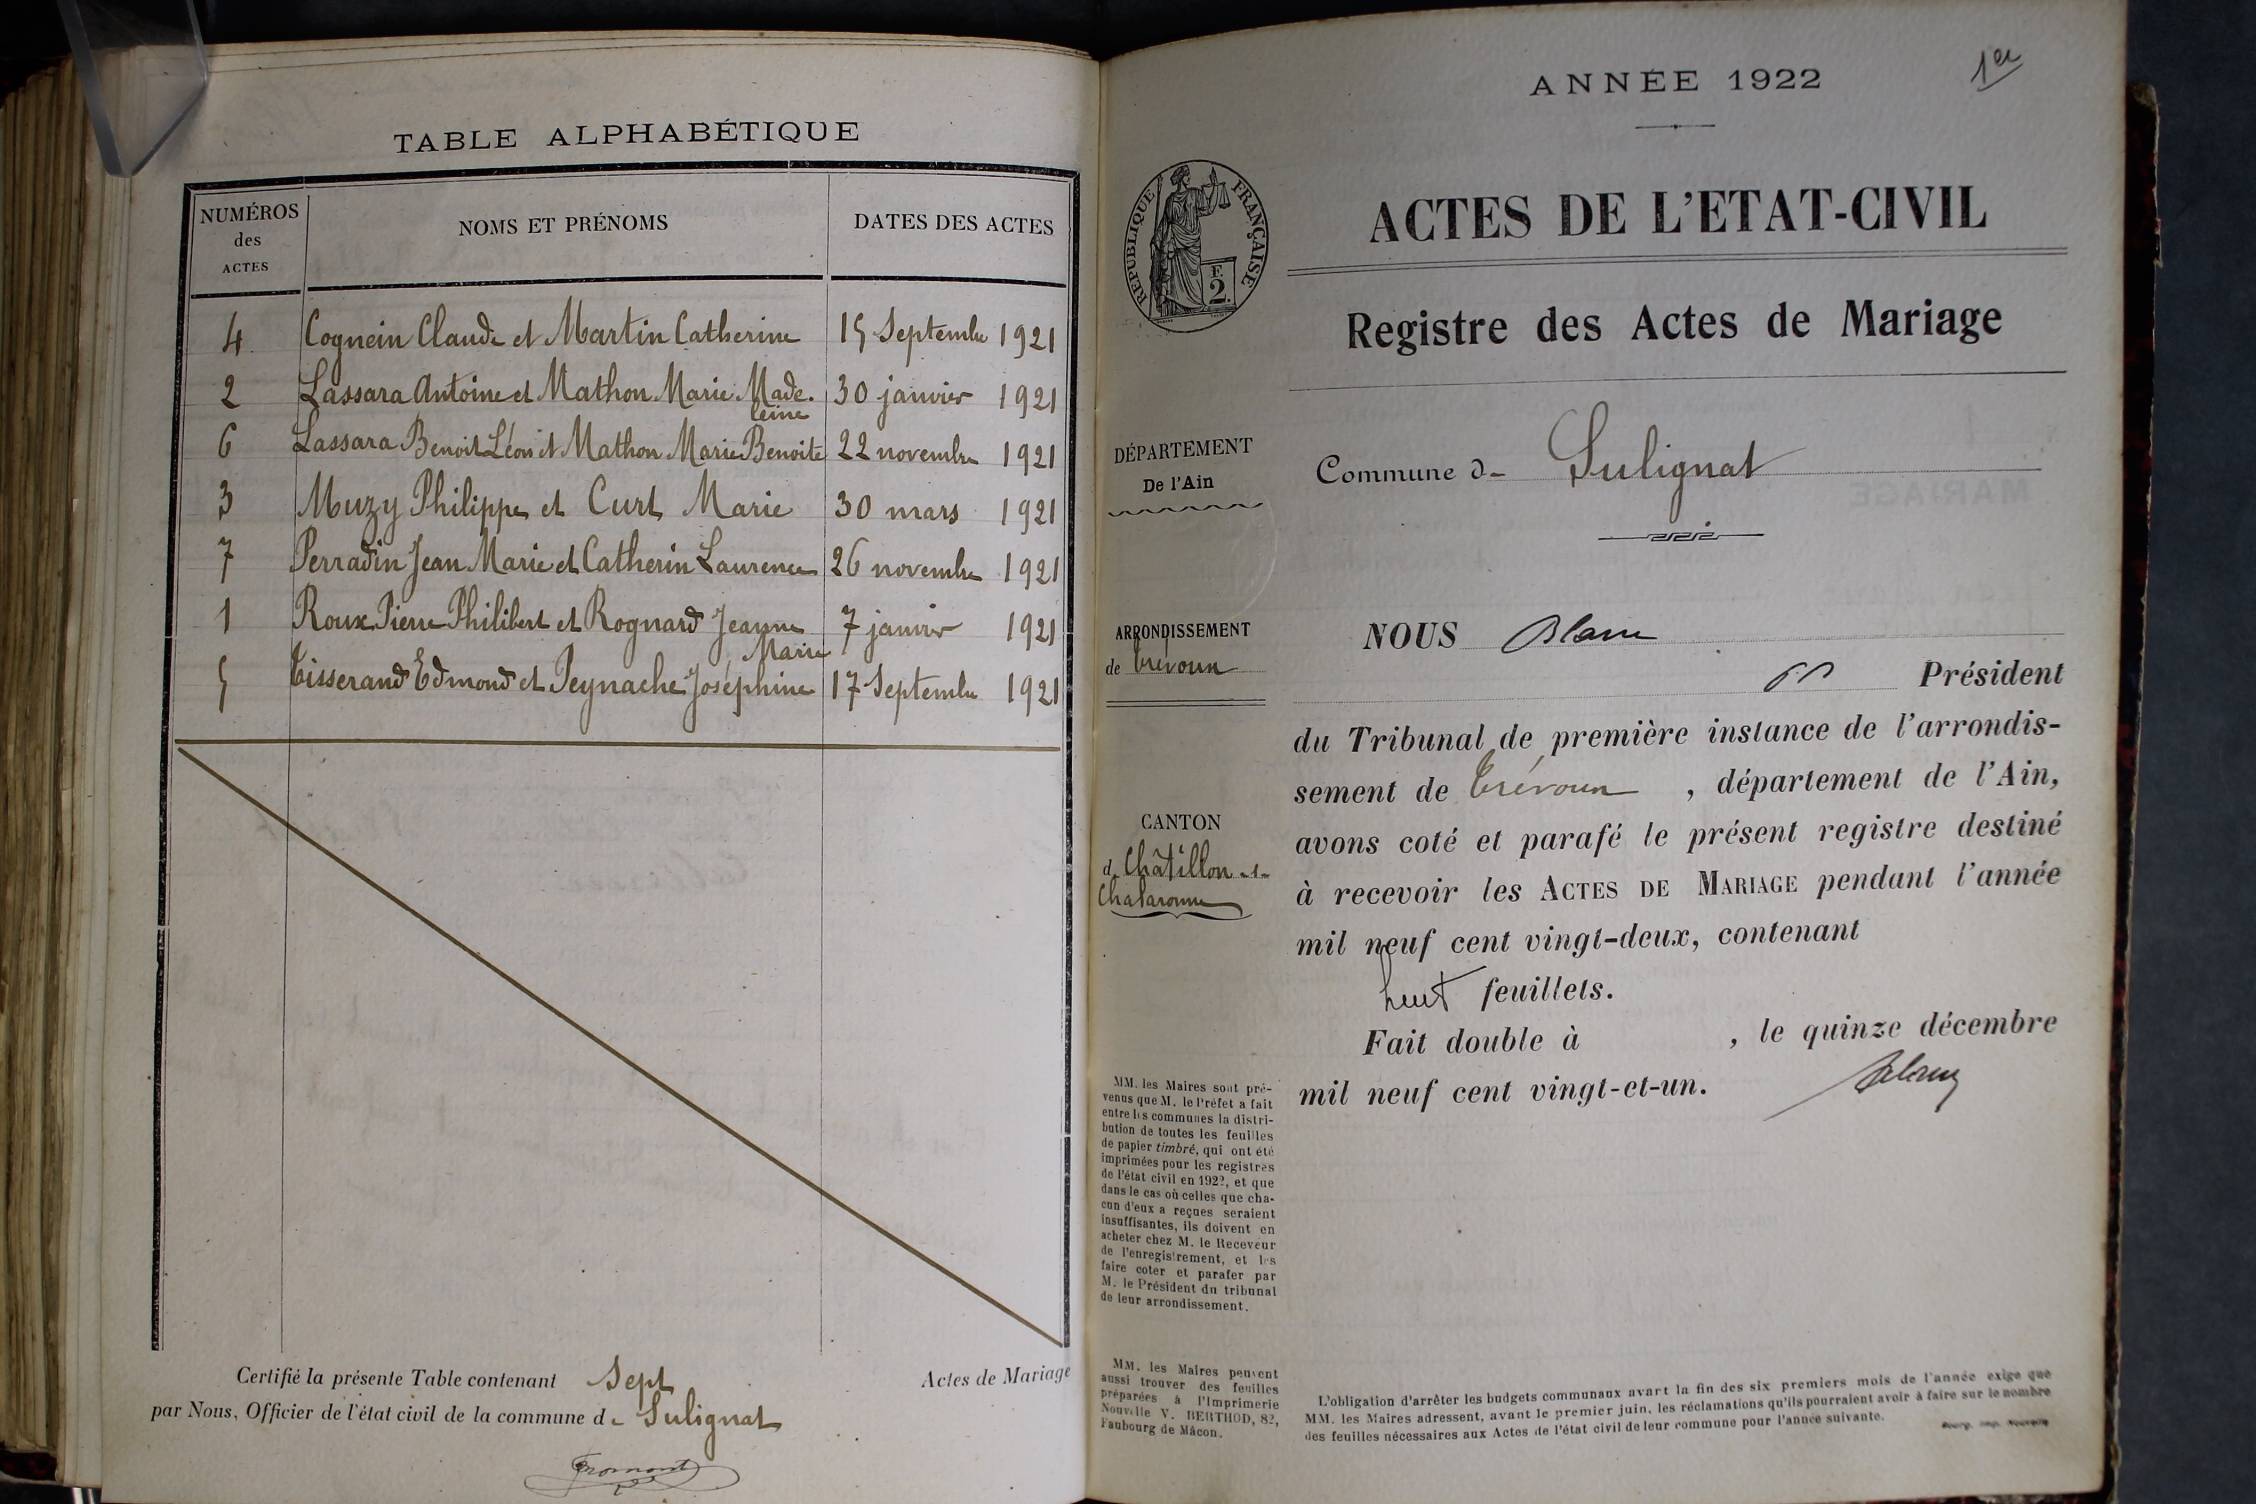 TABLE ALPHABÉTIQUE
NUMÉROS des ACTES NOMS ET PRÉNOMS DATES DES ACTES
4 Cognein Claude et Martin Catherine 15 Septembre 1921
2 Lassara Antoine et Mathon Marie Made- 30 janvier 1921
leine
6 Lassara Benoit Léon et Mathon Marie Benoite 22 novembre 1921
3 Muzy Philippe et Curt Marie 30 mars 1921
7 Perradin Jean Marie et Catherin Laurence 26 novembre 1921
1 Roux Pierre Philibert et Rognard Jeanne 7 janvier 1921
Marie
5 Tisserand Edmond et Peynache Joséphine 17 Septembre 1921
Certifié la présente Table contenant Sept Actes de Mariage
par Nous, Officier de l'état civil de la commune de Sulignat
Fromont
1er
ANNÉE 1922
RÉPUBLIQUE FRANÇAISE
F.
2.
ACTES DE L'ETAT-CIVIL
Registre des Actes de Mariage
DÉPARTEMENT
De l'Ain
Commune de Sulignat
ARRONDISSEMENT
de Trévoux
NOUS Blanc
Président
du Tribunal de première instance de l'arrondis-
sement de Trévoux, département de l'Ain,
avons coté et parafé le présent registre destiné
à recevoir les ACTES DE MARIAGE pendant l'année
mil neuf cent vingt-deux, contenant
huit feuillets.
Fait double à , le quinze décembre
mil neuf cent vingt-et-un.
Blanc
CANTON
de Châtillon-s-
Chalaronne
MM. les Maires sont pré-
venus que M. le Préfet a fait
entre les communes la distri-
bution de toutes les feuilles
de papier timbré, qui ont été
imprimées pour les registres
de l'état civil en 1922, et que
dans le cas où celles que cha-
cun d'eux a reçues seraient
insuffisantes, ils doivent en
acheter chez M. le Receveur
de l'enregistrement, et les
faire coter et parafer par
M. le Président du tribunal
de leur arrondissement.
MM. les Maires peuvent
aussi trouver des feuilles
préparées à l'Imprimerie
Nouvelle V. BERTHOD, 82,
Faubourg de Mâcon.
L'obligation d'arrêter les budgets communaux avant la fin des six premiers mois de l'année exige que
MM. les Maires adressent, avant le premier juin, les réclamations qu'ils pourraient avoir à faire sur le nombre
des feuilles nécessaires aux Actes de l'état civil de leur commune pour l'année suivante.
Bourg, Imp. Nouvelle